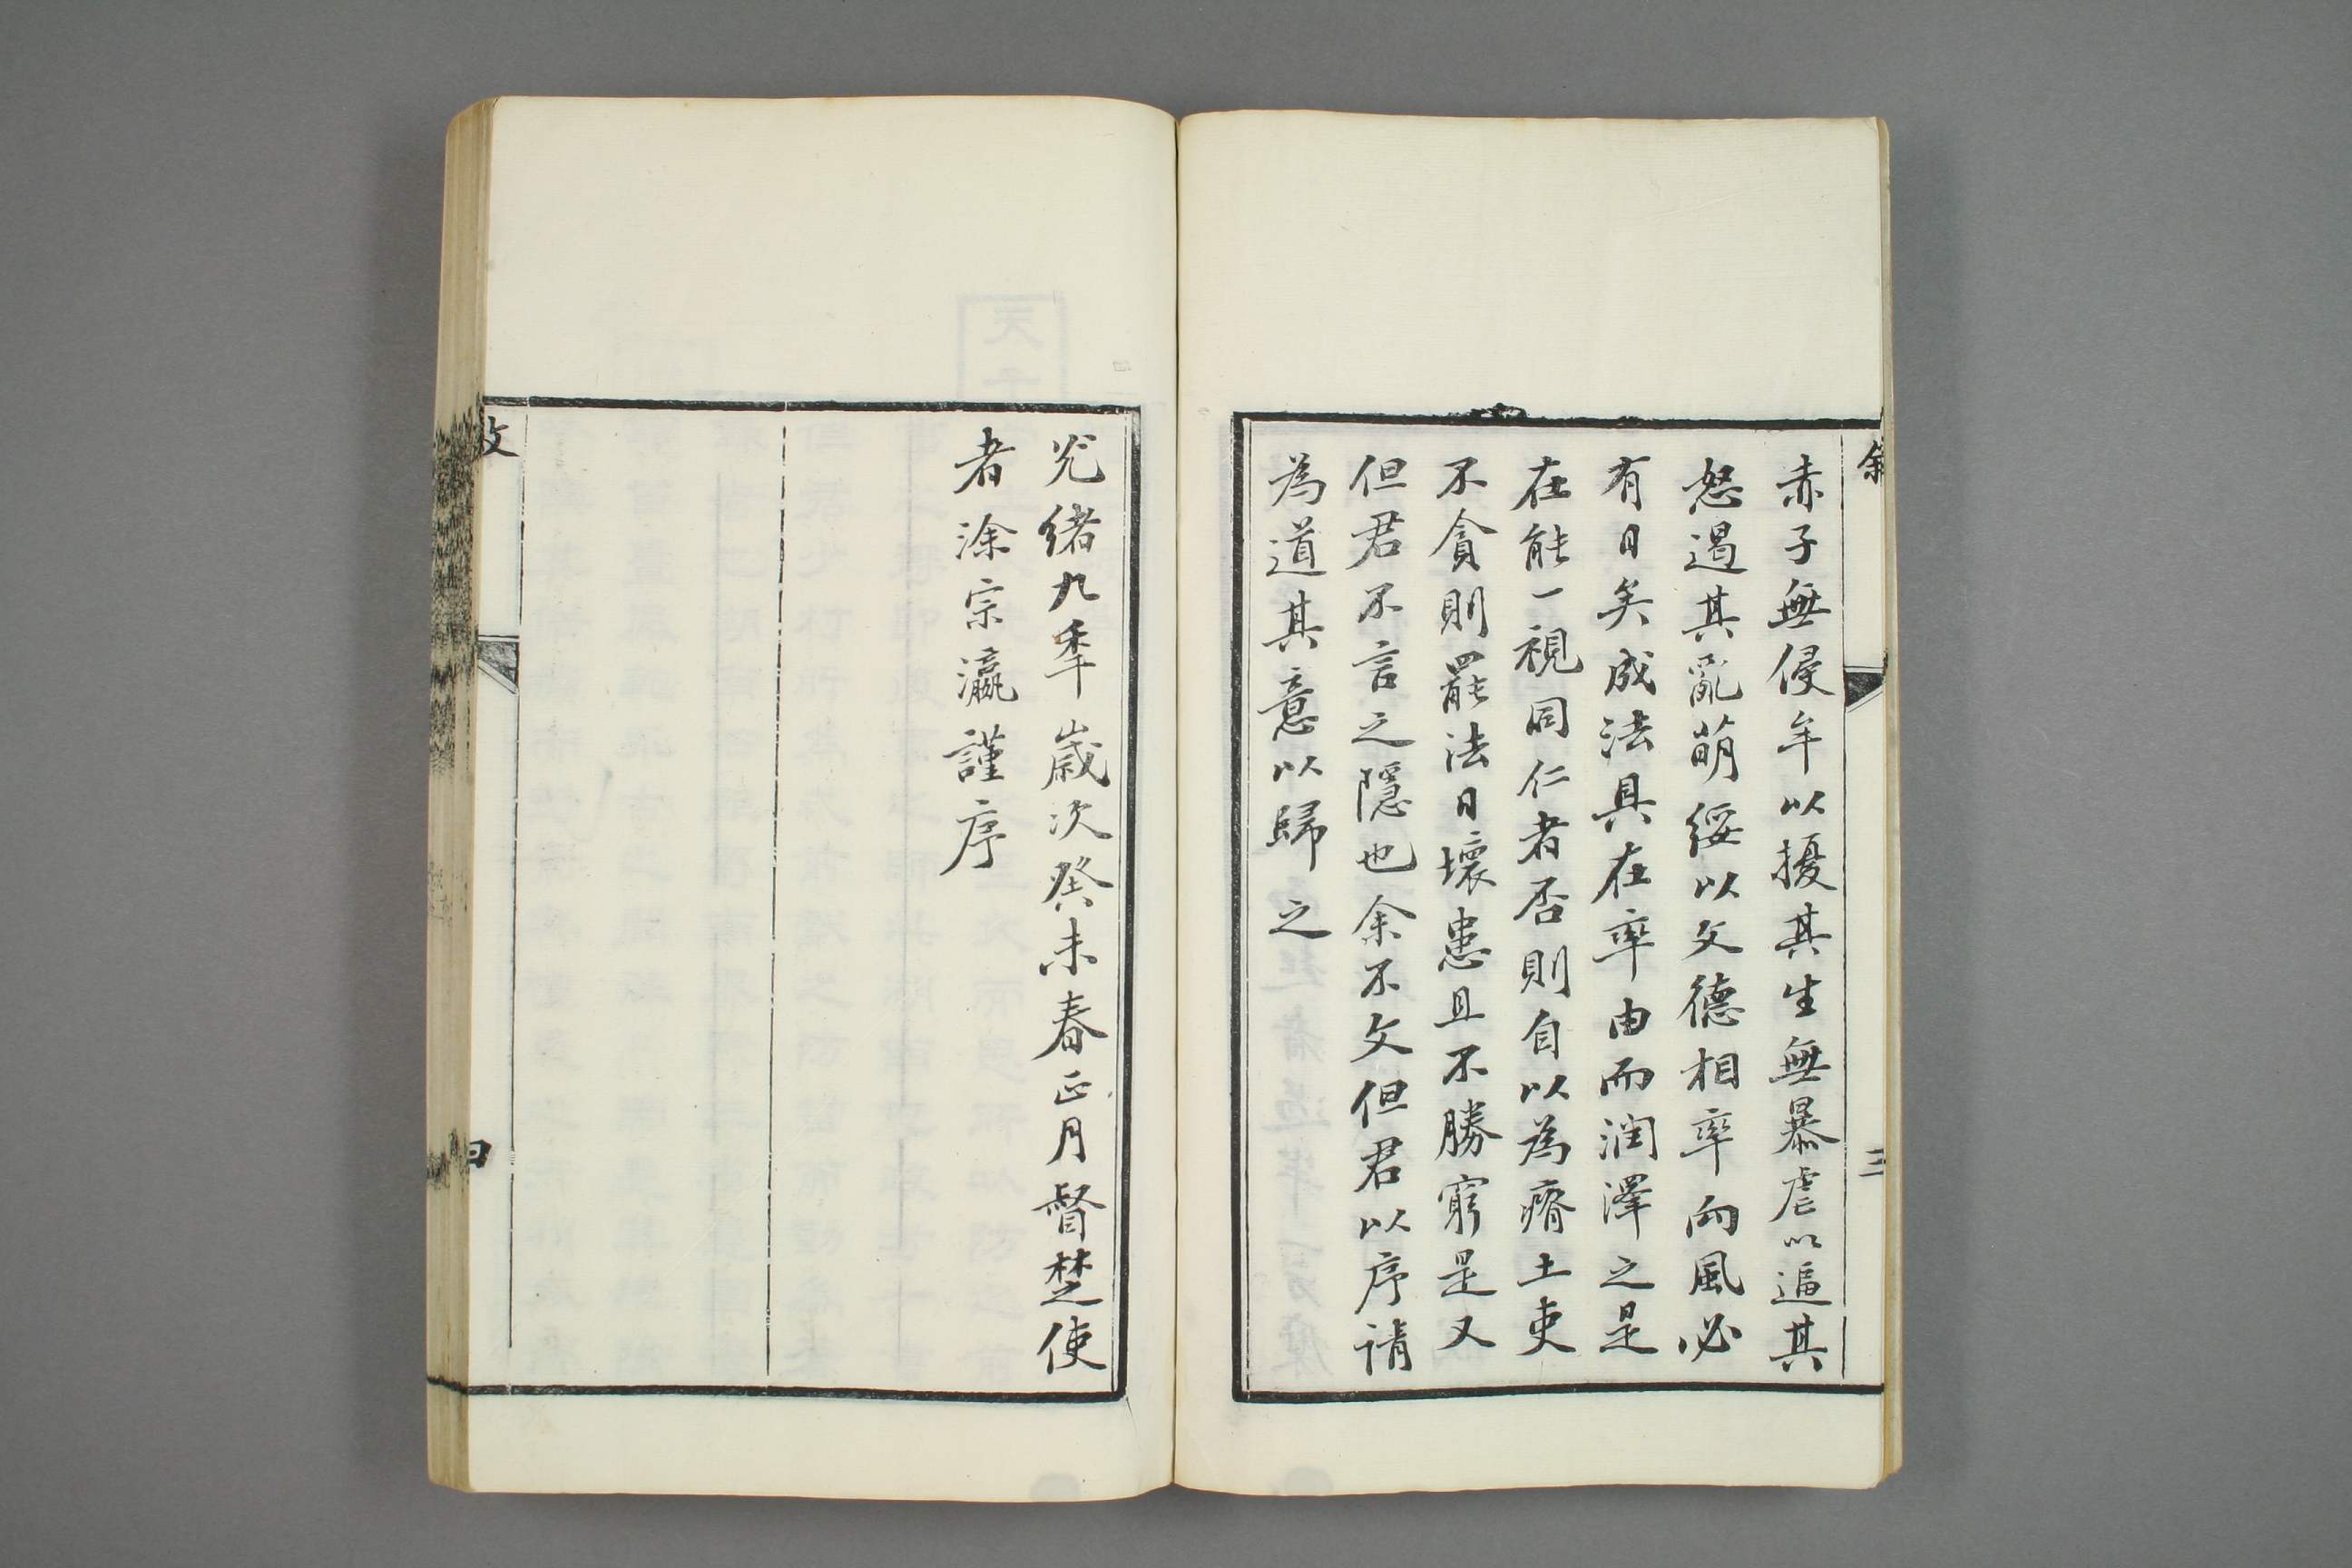 赤子無侵牟以擾其生無暴虐以逼其
怒遏其亂萌綏以文德相率向風必
有日矣成法具在率由而潤澤之是
在能一視同仁者否則自以為瘠土吏
不貪則罷法日壞患且不勝窮是又
但君不言之隱也余不文但君以序請
為道其意以歸之
三
光緒九秊歲次癸未春正月督楚使
者涂宗瀛謹序